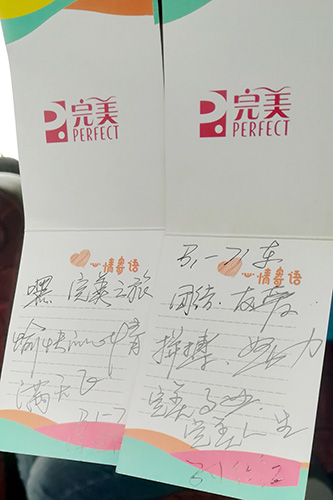 完美
PERFECT
心情寄语
嘿 完美之旅
愉快的心情
满天飞
31-7
完美
PERFECT
31-71车
心情寄语
团结.友爱.
拼搏.努力
完美
完美人生